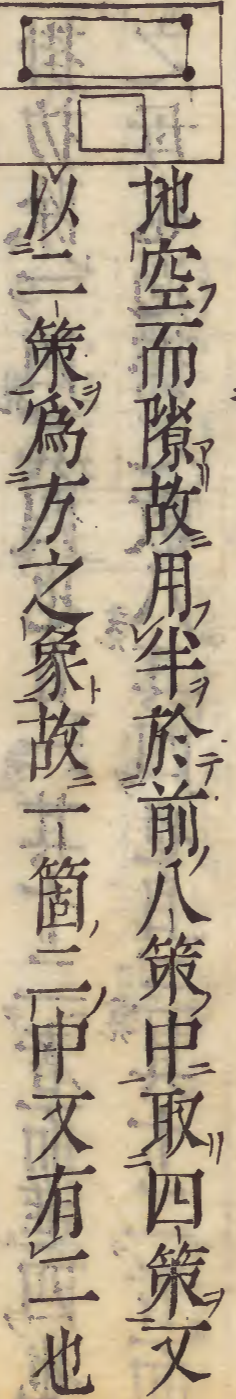 地空而隙故用半於前八策中取四策又
以二策爲方之象故一箇二中又有二也